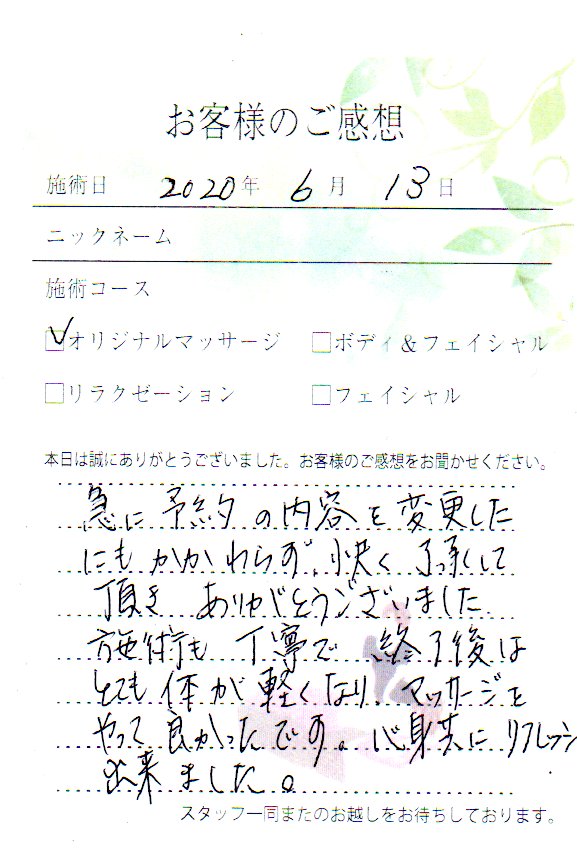 お客様のご感想
施術日 2020年 6月 13日
ニックネーム
施術コース
オリジナルマッサージ ボディ＆フェイシャル
リラクゼーション フェイシャル
本日は誠にありがとうございました。お客様のご感想をお聞かせください。
急に予約の内容を変更した
にもかかわらず、快く了承して
頂き ありがとうございました
施術も 丁寧で 終了後は
とても体が軽くなり、マッサージを
やって良かったです。心身共にリフレッシュ
出来ました。
スタッフ一同またのお越しをお待ちしております。